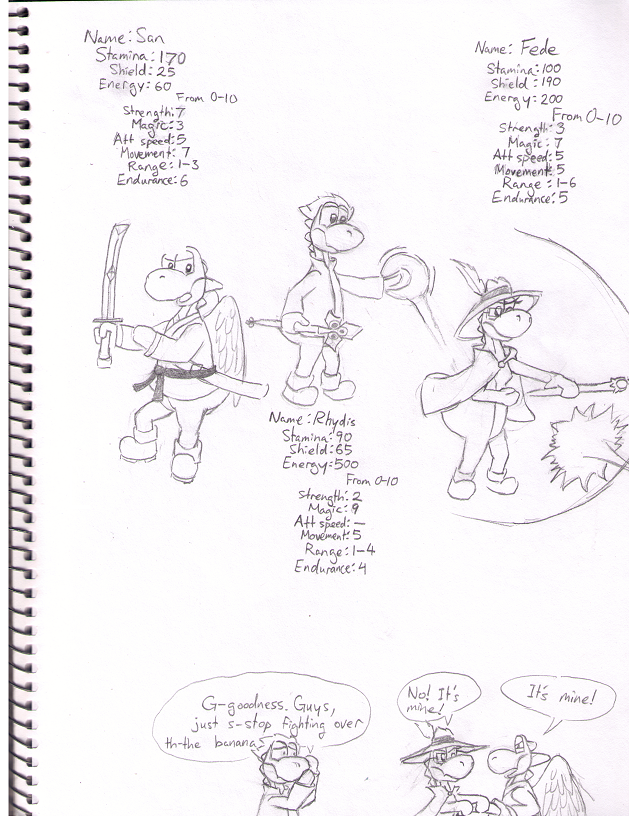 Name: San
Stamina: 170
Shield: 25
Energy: 60
From 0-10
Strength: 7
Magic: 3
Att speed: 5
Movement: 7
Range: 1-3
Endurance: 6
Name: Fede
Stamina: 100
Shield: 190
Energy: 200
From 0-10
Strength: 3
Magic: 7
Att speed: 5
Movement: 5
Range: 1-6
Endurance: 5
Name: Rhydis
Stamina: 90
Shield: 65
Energy: 500
From 0-10
Strength: 2
Magic: 9
Att speed: —
Movement: 5
Range: 1-4
Endurance: 4
G-goodness. Guys,
just s-stop fighting over
th-the banana
No! It's
mine!
It's mine!